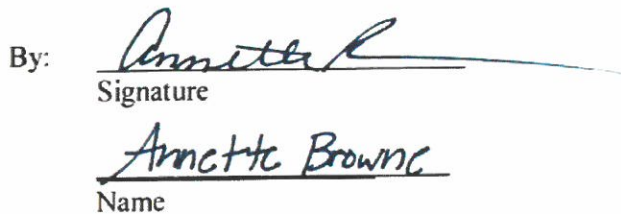 By: Annette
Signature
Annette Browne
Name